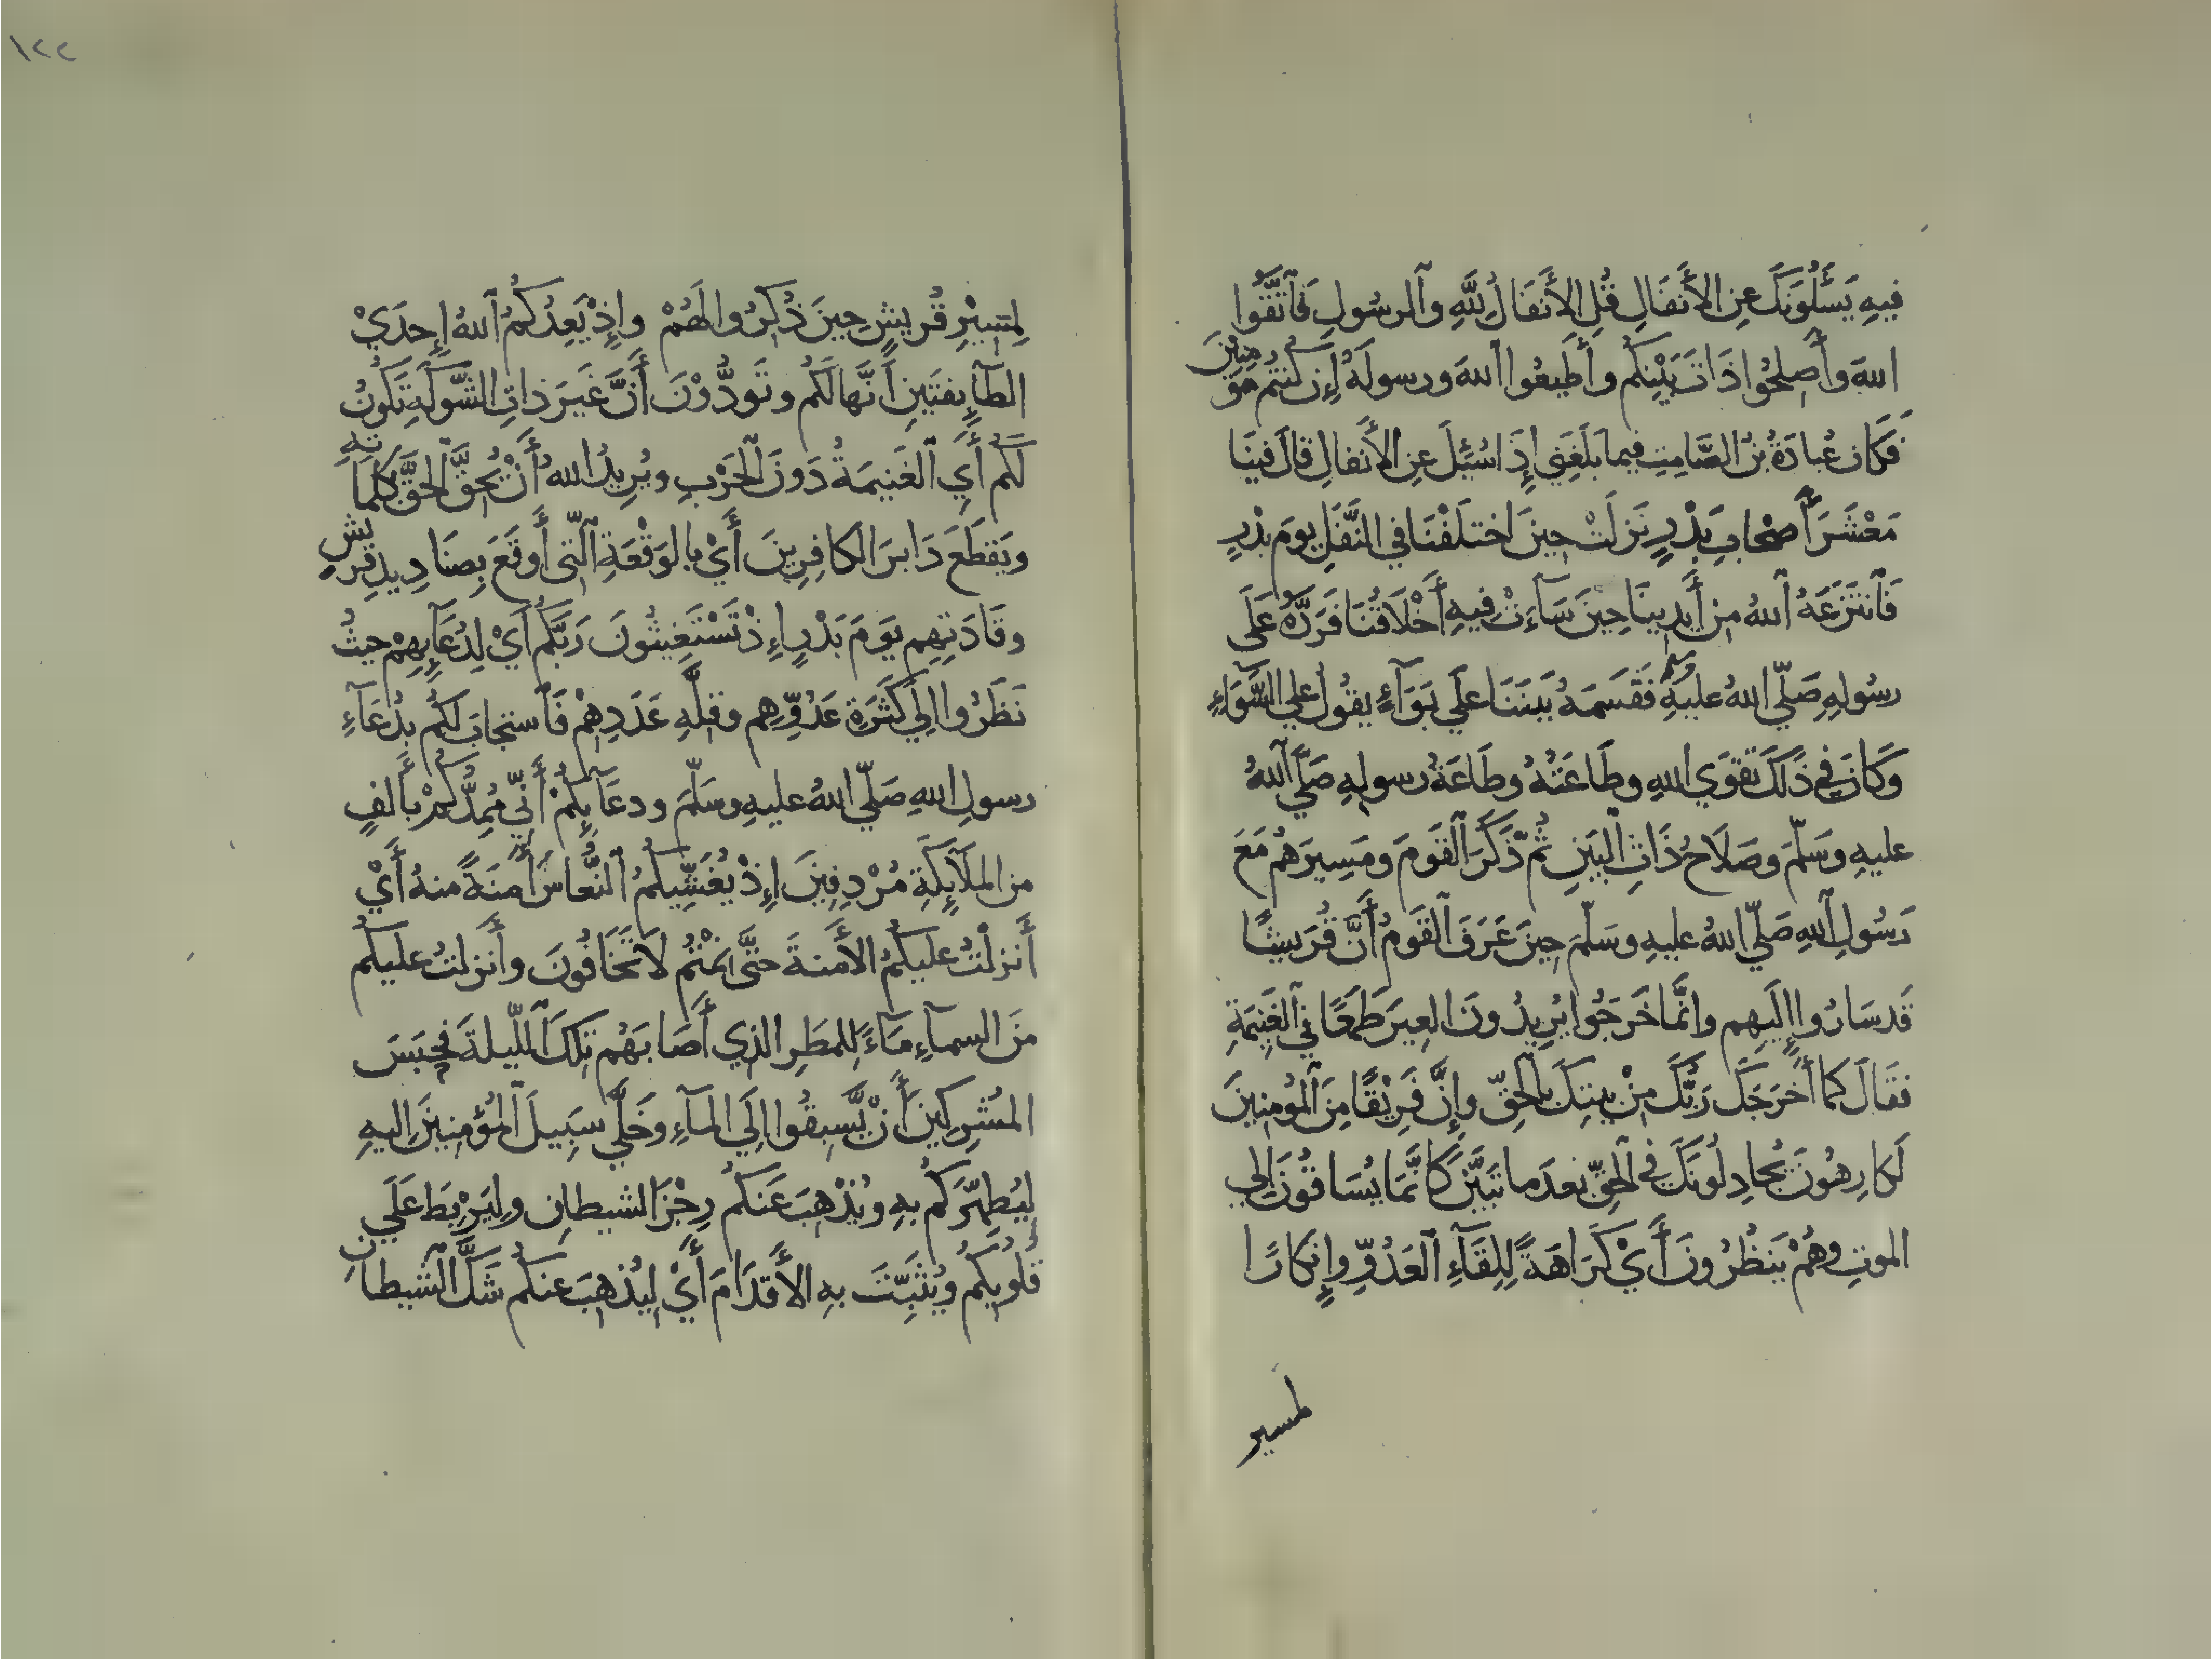 فِيهِ يَسْأَلُونَكَ عَنِ الأَنفَالِ قُلِ الأَنفَالُ لِلَّهِ وَالرسُولِ فَاتَّقُوا
اللهَ وأَصلِحُوا ذَاتَ بَيْنِكُم وأَطِيعُوا اللهَ ورسولَهُ إِن كُنتُم مُؤمِنِيْنَ
فَكَانَ عُبَادَةُ بْنُ الصَّامِتِ فيما بَلَغَنِي إِذَا سُئِلَ عنِ الأَنفالِ قالَ فينَا
مَعْشَرَ أَصْحَابِ بَدْرٍ نَزلَتْ حِينَ اختَلَفْنَا في النَّفَلِ يومَ بدْرٍ
فَانتَزعَهُ اللهُ مِن أَيدِينَا حِيْنَ سَآءَتْ فِيهِ أَخْلَاقُنَا فَرَدَّهُ عَلَى
رسُولِهِ صَلّي اللهُ عليهِ وسلم فَقَسَمَهُ بَينَنَا علَي بَوَآءٍ يقُولُ علي السَّوَاءِ
وَكَانَ فِي ذَلكَ تقوَي اللهِ وطَاعَتُهُ وطَاعَةُ رسولِهِ صَلَّي اللهُ
عليهِ وسَلّمَ وصَلَاحُ ذَاتِ البَينِ ثُمّ ذَكَرَ القَومَ ومَسِيرَهُم مَعَ
رَسُولِ اللهِ صَلّي اللهُ عليهِ وسَلّمَ حِينَ عَرَفَ القَومُ أَنَّ قُرَيشًا
قَد سَارُوا إِلَيهِم وانَّمَا خَرَجُوا يُرِيدُونَ العِيرَ طَمَعًا في الغَنِيمَةِ
فقَالَ كَمَا أَخْرَجَكَ رَبُّكَ مِنْ بيتِكَ بالحقِّ وإِنَّ فَرِيْقًا مِنَ المُومِنِينَ
لَكَارِهُونَ يُجَادِلُونَكَ فِي الحَقِّ بعدَ ما تبَيَّنَ كَأَنَّمَا يُسَاقُونَ إِلي
الموتِ وهُمْ يَنظُرُونَ أَيْ كَرَاهَةً لِلِقَآءِ العَدُوِّ وإِنكارًا
لمسير
١٢٢
لِمَسِيْرِ قُرَيشٍ حِينَ ذُكِرُوا لَهُمْ وإِذْ يَعِدُكُمُ اللهُ إِحدَيْ
الطآئِفَتَينِ أَنَّهَا لَكُم وتَودُّوْنَ أَنَّ غَيرَ ذاتِ الشَّوكَةِ تكُونُ
لَكُم أَيِ الغَنِيمَةُ دَونَ الحَرْبِ ويُرِيدُ اللهُ أَنْ يُحِقَّ الحَقَّ بكَلِمَاتِهِ
ويَقطَعَ دَابرَ الكافِرِينَ أَيْ بالوَقْعَةِ الّتي أَوقَعَ بِصنَادِيدِ قريشٍ
وقَادَتِهِم يَومَ بَدْرٍ إِذْ تَسْتَغِيثُونَ رَبَّكُم أَيْ لِدُعَآئِهِمْ حيثُ
نَظَرُوا إِلَي كَثْرَةِ عَدُوِّهِم وقلَّةِ عَدَدِهِمْ فَاستجَابَ لَكُم بِدُعَآءِ
رسولِ اللهِ صَلّي اللهُ عليهِ وسَلّمَ ودعَآئِكُمْ أَنّي مُمِدُّكُمْ بأَلفٍ
من المَلَآئِكَةِ مُرْدِفِينَ إِذْ يُغَشِّيكُمُ النُّعَاسَ أَمَنَةً منهُ أَيْ
أَنزلْتُ عليكُمُ الأَمنةَ حتَّى نِمْتُم لَا تَخَافُونَ وأَنزلتُ عليكُم
منَ السمآءِ مَآءً لِلمَطَرِ الذِي أَصَابَهُم تِلكَ اللّيلةَ فحبَسَ
المُشرِكِينَ أَنْ يَّسبِقُوا إِلَي المآءِ وخَلَّي سَبِيلَ المُؤمِنِينَ إِليهِ
لِيُطهِّرَكُم بهِ ويُذْهِبَ عَنكُم رِجْزَ الشيطانِ ولِيَرْبِطَ عَلَي
قُلُوبِكُم ويُثَبِّتَ بهِ الأَقدَامَ أَيْ لِيُذهِبَ عنكُم شَكَّ الشيطانِ